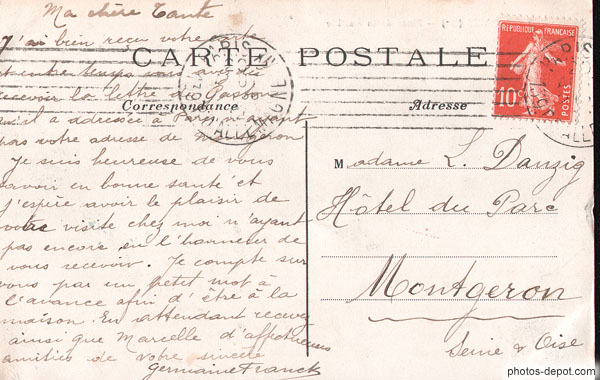 Ma chère Tante
J'ai bien reçu votre carte
CARTE POSTALE
et entre temps vous avez dû
recevoir la lettre de
Correspondance
qu'il a adressée à Paris n'ayant
pas votre adresse de Montgeron
Je suis heureuse de vous
savoir en bonne santé et
j'espère avoir le plaisir de
votre visite chez moi n'ayant
pas encore eu l'honneur de
vous recevoir. Je compte sur
vous par un petit mot à
l'avance afin d'être à la
maison. En attendant recevez
ainsi que Marcelle d'affectueuses
amitiés de votre sincère
Germaine Franck
Adresse
REPUBLIQUE FRANÇAISE
10c
POSTES
PARIS
Madame L. Danzig
Hôtel du Parc
Montgeron
Seine & Oise
photos-depot.com